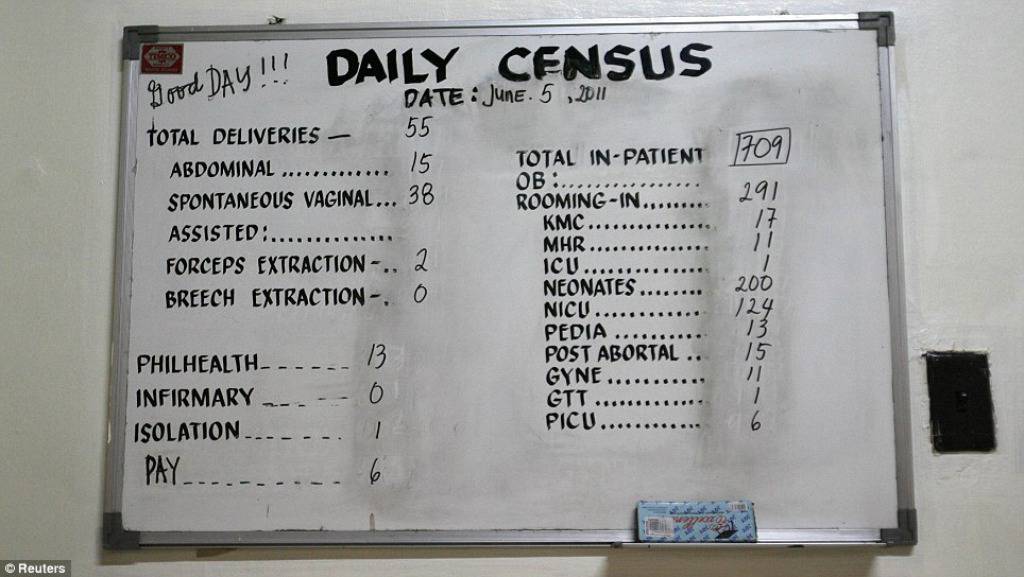 Good DAY!!!
DAILY CENSUS
DATE: JUNE. 5, 2011
TOTAL DELIVERIES — 55
ABDOMINAL ............. 15
SPONTANEOUS VAGINAL... 38
ASSISTED:..............
FORCEPS EXTRACTION-.. 2
BREECH EXTRACTION-. 0
PHILHEALTH------ 13
INFIRMARY ------ 0
ISOLATION------ 1
PAY--------- 6
TOTAL IN-PATIENT 709
OB:................
ROOMING-IN........ 291
KMC............... 17
MHR............... 11
ICU............... 1
NEONATES........ 200
NICU.............. 124
PEDIA ............ 13
POST ABORTAL .. 15
GYNE............. 11
GTT.............. 1
PICU.............. 6
Excellen
© Reuters